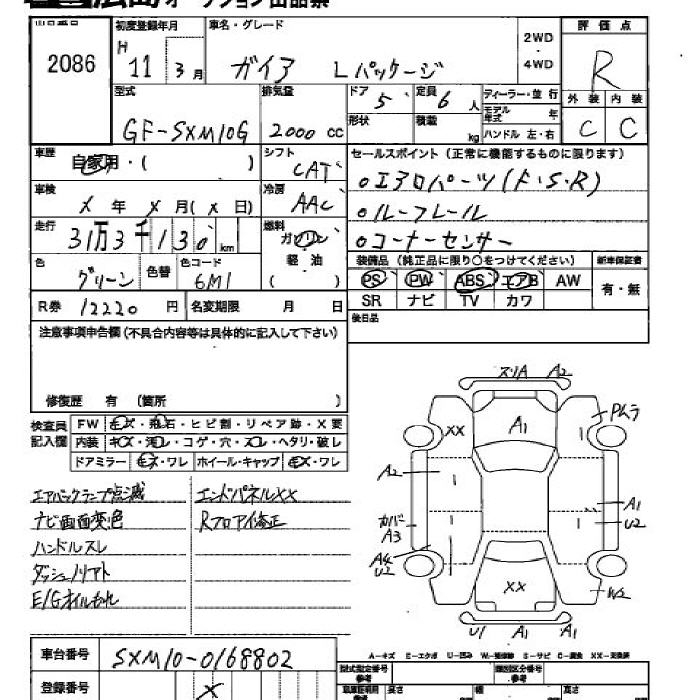 オークション出品票
出品番号 初度登録年月 車名・グレード 2WD・4WD 評価点
2086 H 11年 3月 ガイア Lパッケージ R
型式 排気量 ドア 5 定員 6人 ディーラー・並行 外装 内装
GF-SXM10G 2000cc 形状 積載 kg モデル年式 年 ハンドル 左・右 C C
車歴 自家用・( ) シフト CAT セールスポイント (正常に機能するものに限ります)
車検 X年 X月(X日) 冷房 AAC ○エアロパーツ(F・S・R)
○ルーフレール
走行 31万3千130km 燃料 ガソリン 軽油 ( ) ○コーナーセンサー
色 グリーン 色替 色コード 6M1 装備品 (純正品に限り○をつけてください) 新車保証書
PS PW ABS エアB AW 有・無
R券 12220円 名変期限 月 日 SR ナビ TV カワ
注意事項申告欄(不具合内容等は具体的に記入して下さい) 後日品
修復歴 有 (箇所 )
検査員記入欄 FW キズ・飛石・ヒビ割・リペア跡・X要
内装 キズ・汚レ・コゲ・穴・スレ・ヘタリ・破レ
ドアミラー キズ・ワレ ホイール・キャップ キズ・ワレ
エアバックランプ点滅 エンドパネルXX
ナビ画面変色 Rフロアイ修正
ハンドルスレ
ダッシュノリアト
E/Gオイルもれ
スリA A2
XX A1 1 Pムラ
A2 1 1
A1
U2
カバーA3 1 1
A4
U2
XX W2
U1 A1 A1
A-キズ E-エクボ U-凹み W-補修跡 S-サビ C-腐食 XX-交換済
車台番号 SXM10-0168802 型式指定番号 参考 類別区分番号 参考
登録番号 X 長さ 幅 高さ